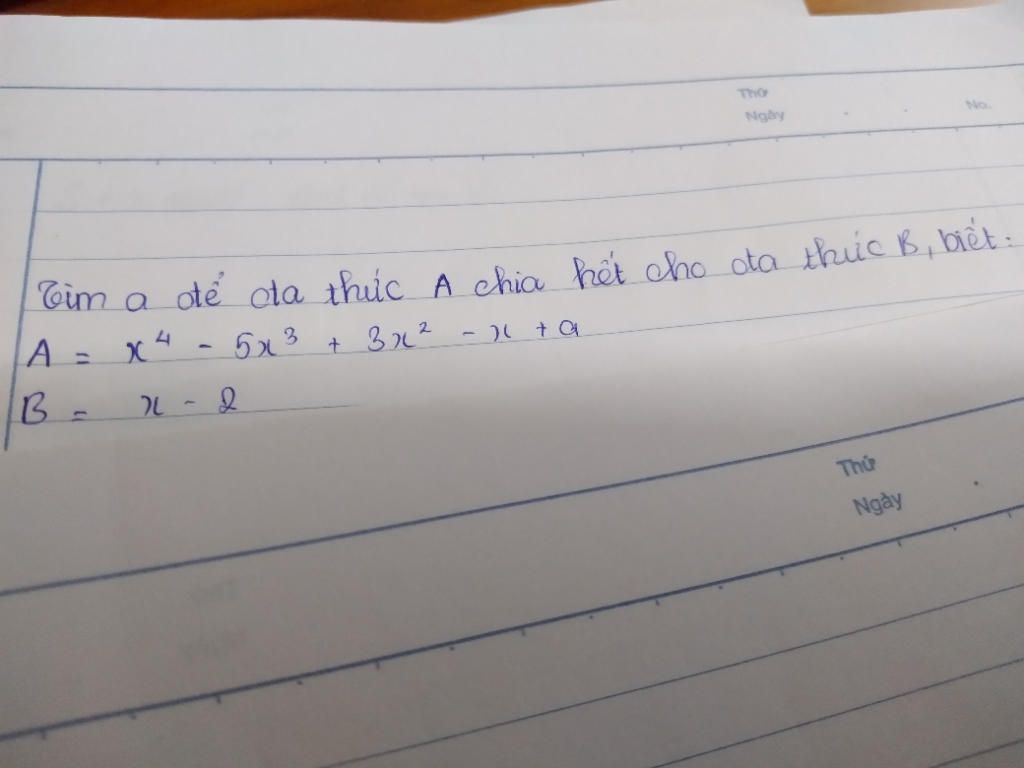 Thứ
Ngày
No.
Tìm a để đa thức A chia hết cho đa thức B, biết:
A = x⁴ - 5x³ + 3x² - x + a
B = x - 2
Thứ
Ngày